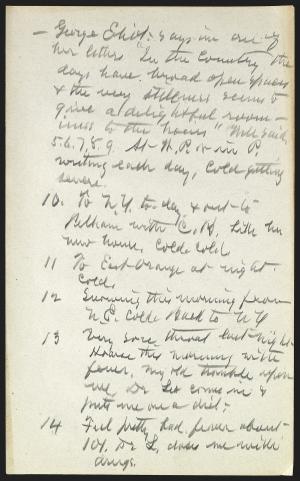 — George Eliot says in one of
her letters "In the Country the
days have broad open spaces
& the very stillness seems to
give a delightful roomi-
ness to the hours" Well said.
5. 6. 7. 8. 9. At W. P. & in P.
writing each day, Cold getting
severe.
10. To N.Y. to day & out to
Pelham with C. B. Like his
new house. Cold. Cold.
11 To East Orange at night.
Cold.
12 Snowing this morning from
N. E. Cold. Back to N Y
13 Very sore throat last night.
Worse this morning with
fever, my old trouble upon
me. Dr comes in &
puts me on a diet.
14 Feel pretty bad, fever about
101. Dr L. doses me with
drugs.